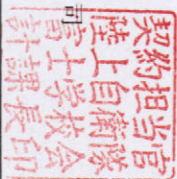 契約担当官
陸上自衛隊
富士学校会
計課長印